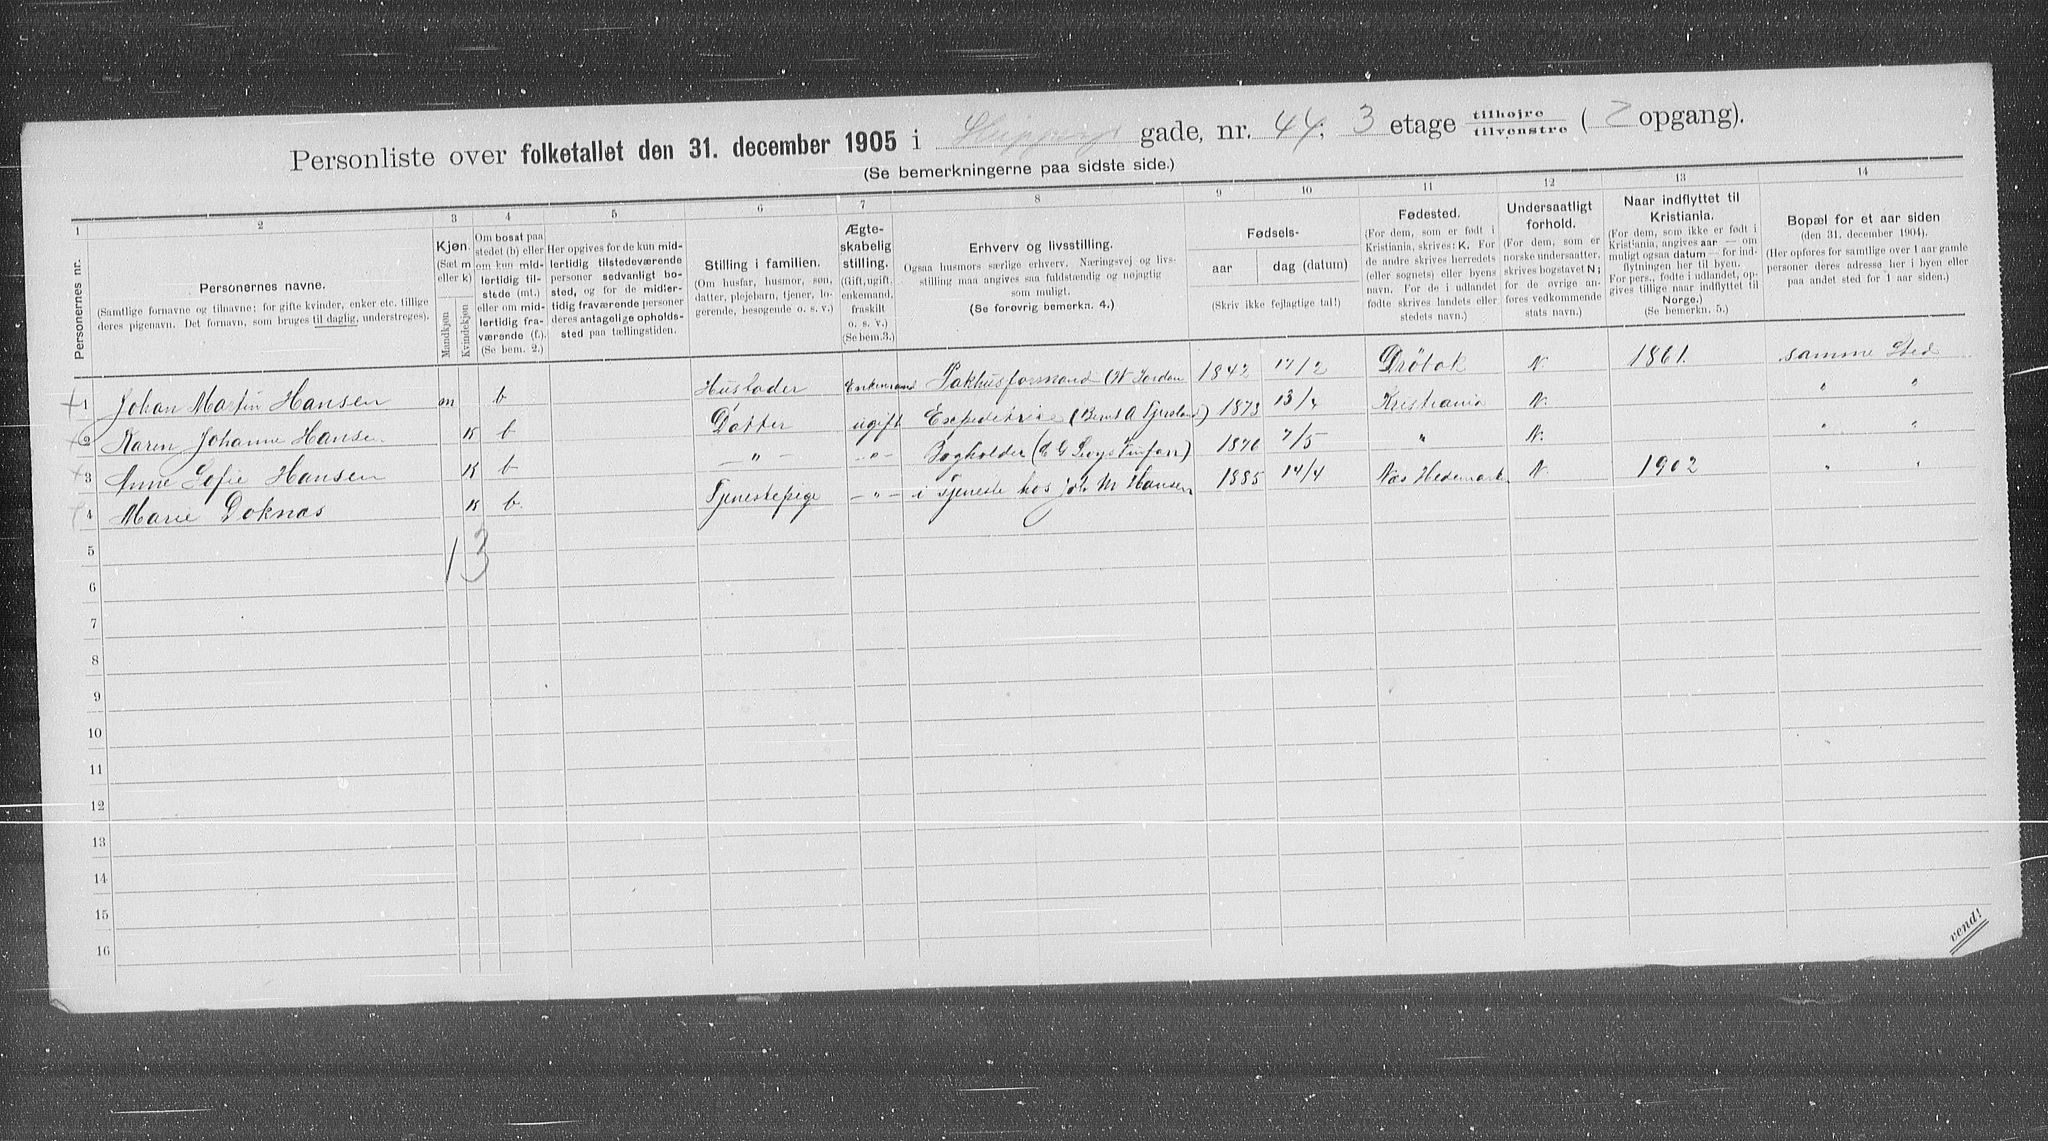 Personliste over folketallet den 31. december 1905 i Skippergt gade, nr. 44; 3 etage tilhøjre / tilvenstre ( 2 opgang).
(Se bemerkningerne paa sidste side.)
1 2 3 4 5 6 7 8 9 10 11 12 13 14
Personernes nr.
Personernes navne.
(Samtlige fornavne og tilnavne; for gifte kvinder, enker etc. tillige
deres pigenavn. Det fornavn, som bruges til daglig, understreges).
Kjøn.
(Sæt m
eller k)
Mandkjøn
Kvindekjøn
Om bosat paa
stedet (b) eller
om kun mid-
lertidig til-
stede (mt.)
eller om mid-
lertidig fra-
værende (f.).
(Se bem. 2.)
Her opgives for de kun mid-
lertidig tilstedeværende
personer sedvanligt bo-
sted, og for de midler-
tidig fraværende personer
deres antagelige opholds-
sted paa tællingstiden.
Stilling i familien.
(Om husfar, husmor, søn,
datter, plejebarn, tjener, lo-
gerende, besøgende o. s. v.)
Ægte-
skabelig
stilling.
(Gift, ugift,
enkemand,
fraskilt
o. s. v.)
(Se bem. 3.)
Erhverv og livsstilling.
Ogsaa husmors særlige erhverv. Næringsvej og livs-
stilling maa angives saa fuldstændig og nøjagtig
som muligt.
(Se forøvrig bemerkn. 4.)
Fødsels-
aar dag (datum)
(Skriv ikke fejlagtige tal!)
Fødested.
(For dem, som er født i
Kristiania, skrives: K. For
de andre skrives herredets
(eller sognets) eller byens
navn. For de i udlandet
fødte skrives landets eller
stedets navn.)
Undersaatligt
forhold.
(For dem, som er
norske undersaatter,
skrives bogstavet N;
for de øvrige an-
føres vedkommende
stats navn.)
Naar indflyttet til
Kristiania.
(For dem, som ikke er født i
Kristiania, angives aar — om
muligt ogsaa datum — for ind-
flytningen her til byen.
For pers., fødte i udlandet, op-
gives tillige naar indflyttet til
Norge.)
(Se bemerkn. 5.)
Bopæl for et aar siden
(den 31. december 1904).
(Her opføres for samtlige over 1 aar gamle
personer deres adresse her i byen eller
paa andet sted for 1 aar siden.)
1 Johan Martin Hansen m b Husfader Enkemand Pakhusformand (W Jordan 1842 17/2 Drøbak N 1861. samme Sted
2 Karen Johanne Hansen K b Datter ugift Expeditrice (Bernt A Fjersland) 1873 13/4 Kristiania N. " "
3 Anne Sofie Hansen K b — " — — " — Bogholder ( 1876 7/5 " N. " "
4 Marie Doknæs K b. Tjenestepige — " — i Tjeneste hos Joh M Hansen 1885 14/4 Næs Hedemark N. 1902 " "
5 1 3
6
7
8
9
10
11
12
13
14
15
16
vend!